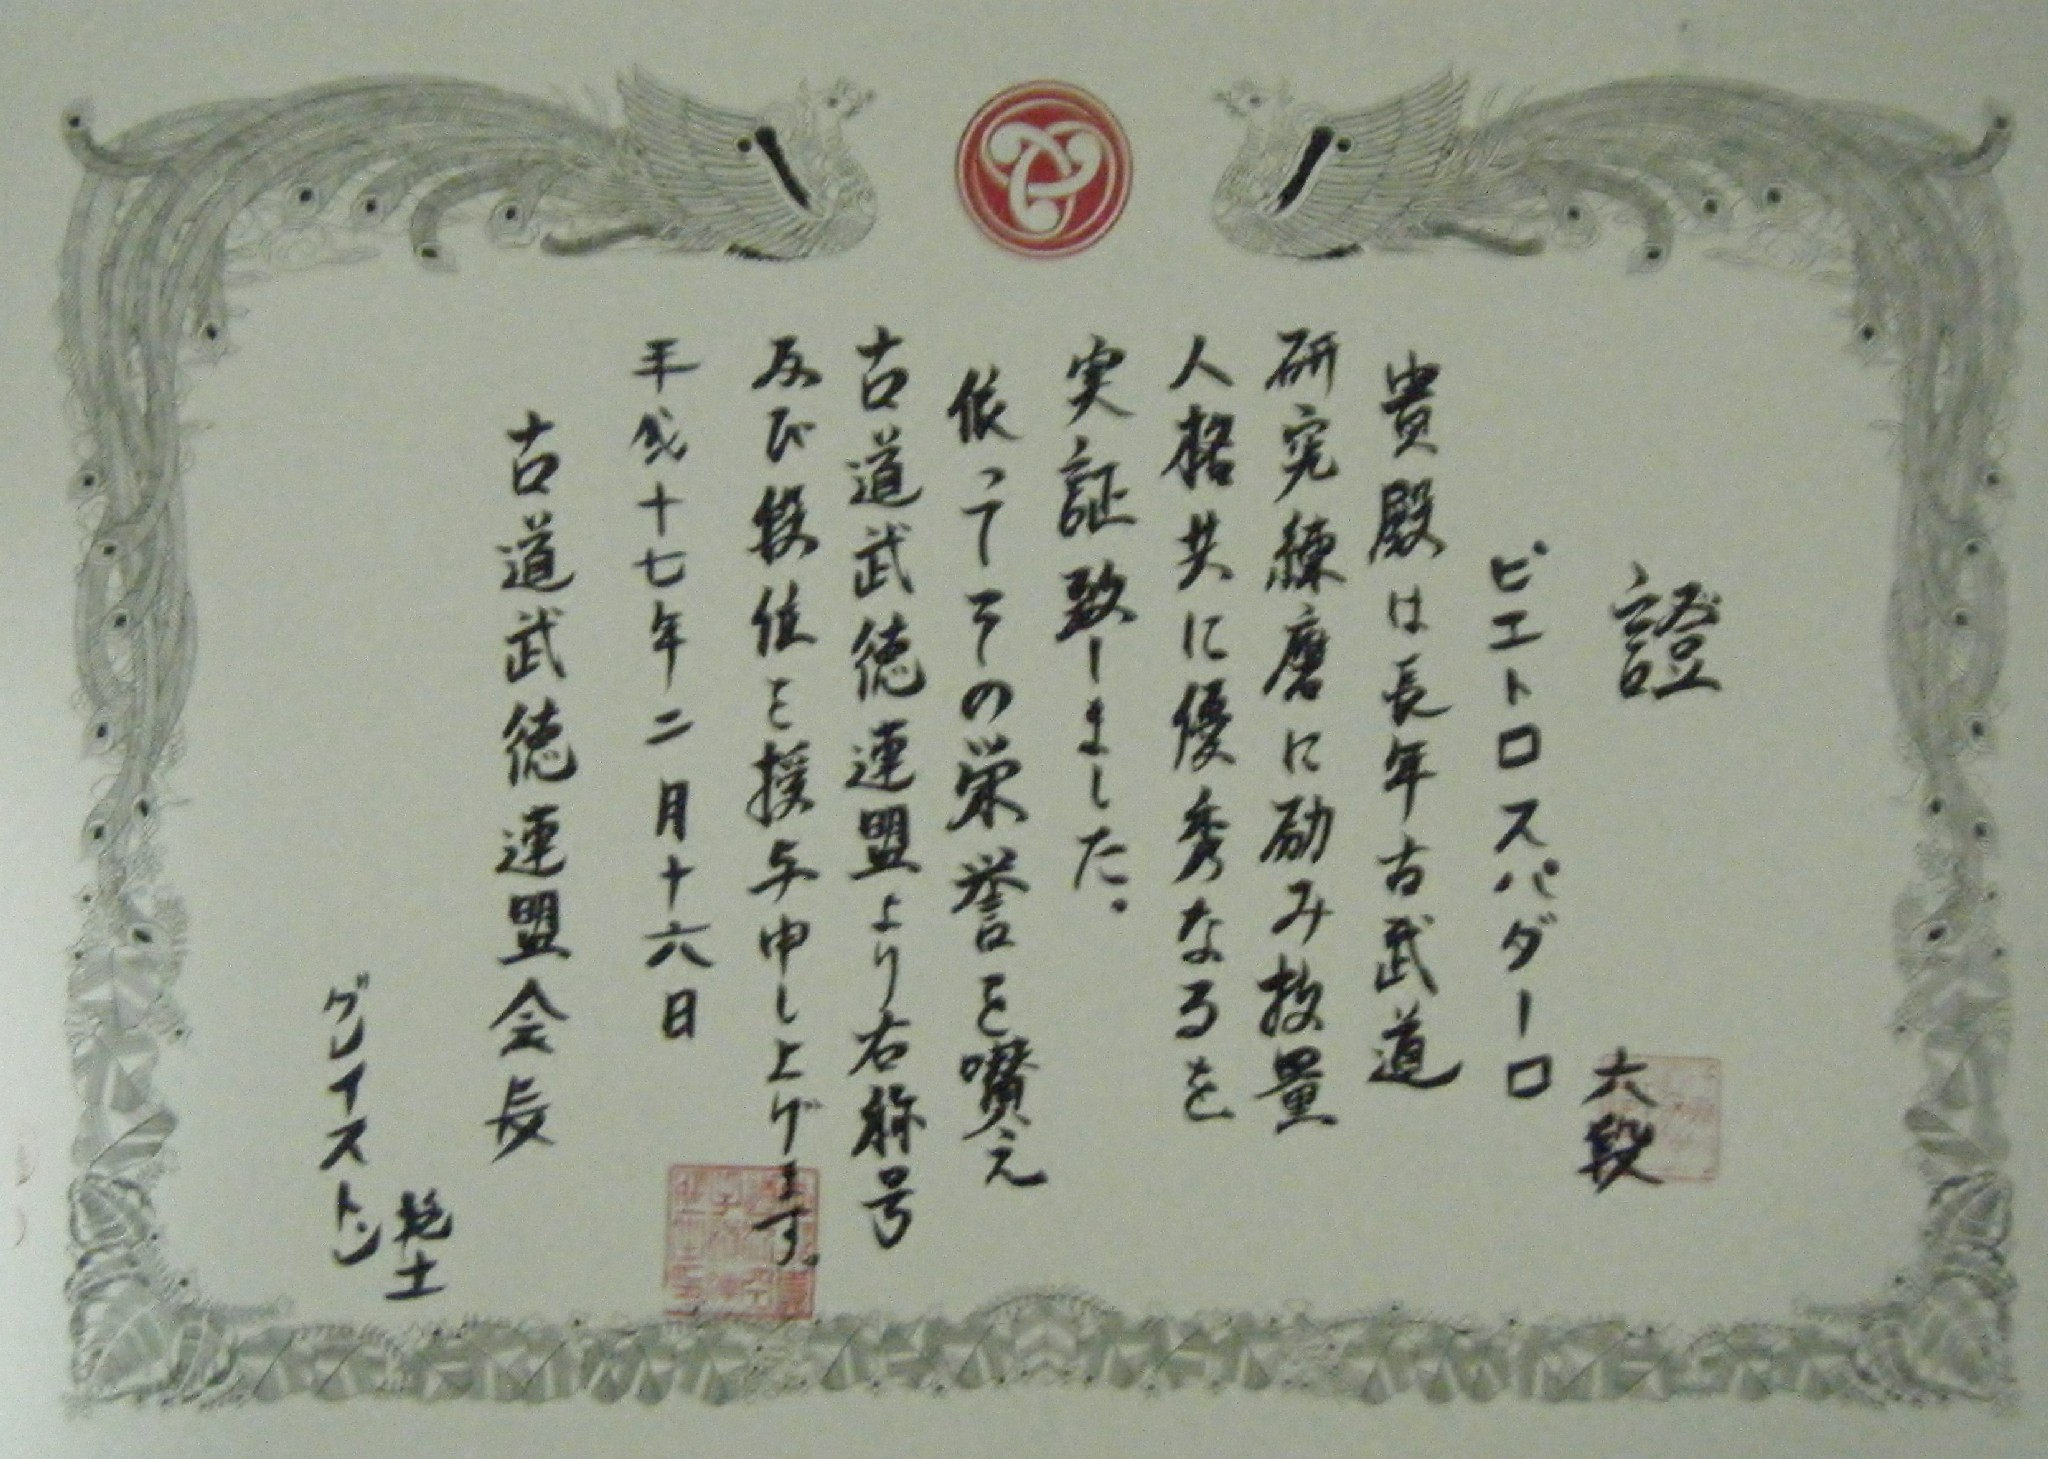 證
六段
ピエトロスパダーロ
貴殿は長年古武道
研究練磨に励み技量
人格共に優秀なるを
実証致しました。
依ってその栄誉を讃え
古道武徳連盟より右称号
及び段位を授与申し上げます。
平成十七年二月十六日
古道武徳連盟会長
範士
グレイストン